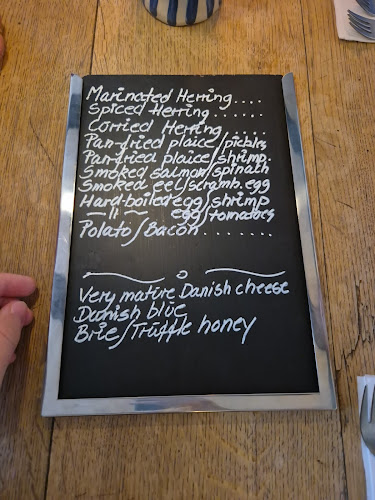 Marinated Herring....
Spiced Herring......
Curried Herring ....
Pan-fried plaice/pickles
Pan-fried plaice/shrimp.
Smoked salmon/spinath
Smoked eel/scramb.egg
Hard-boiled egg/shrimp
—11— egg/tomatoes
Potato/Bacon........
Very mature Danish cheese
Danish blue
Brie/Truffle honey